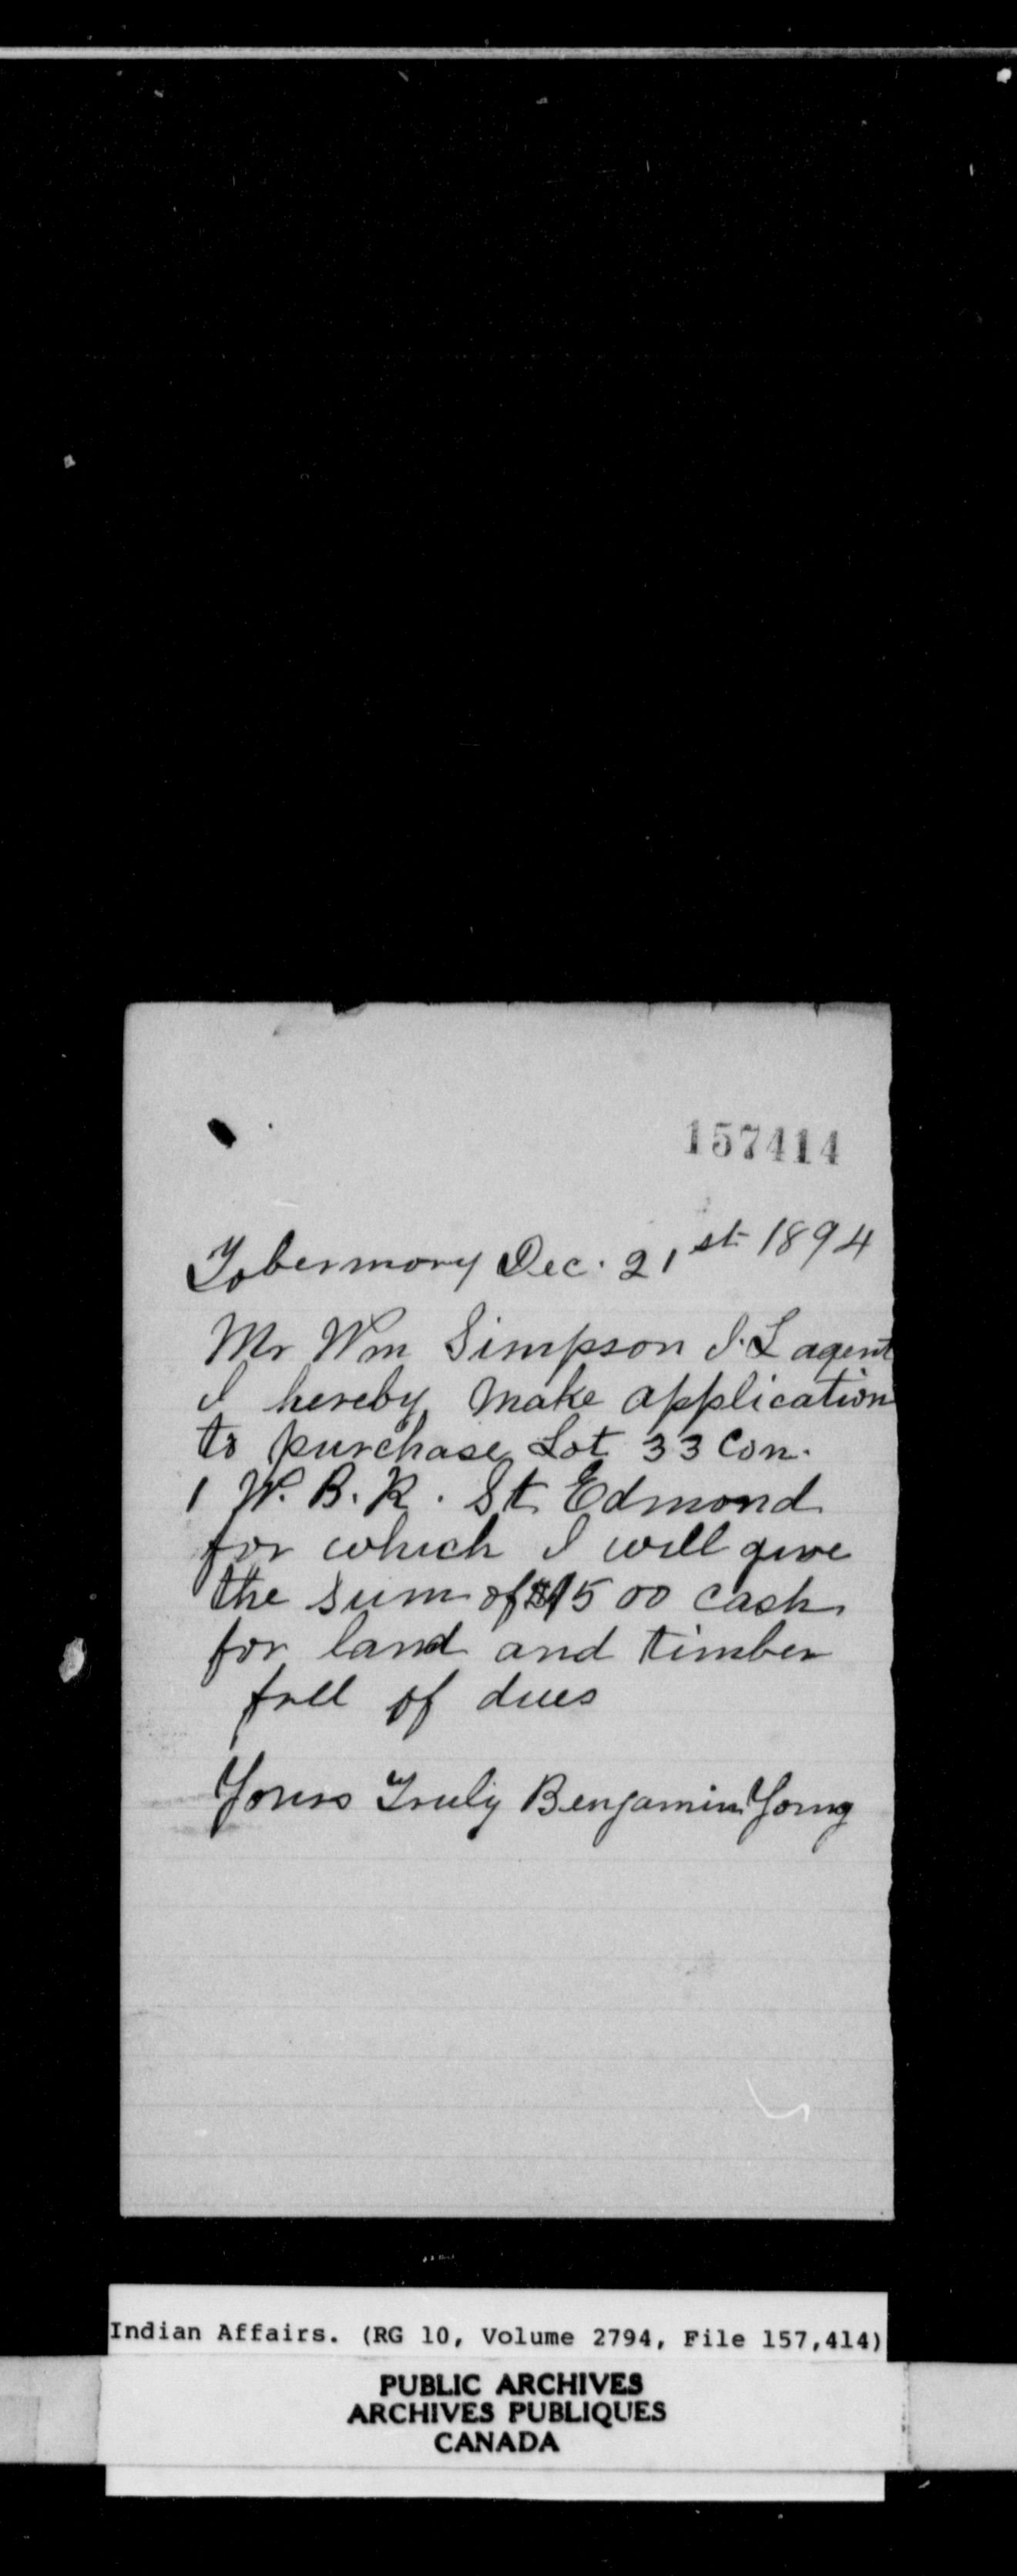 157414
Tobermory Dec. 21st 1894
Mr Wm Simpson I. L agent
I hereby make application
to purchase Lot 33 Con.
1 W. B. R. St Edmond
for which I will give
the sum of $15 00 cash
for land and timber
full of dues
Yours Truly Benjamin Young
Indian Affairs. (RG 10, Volume 2794, File 157,414)
PUBLIC ARCHIVES
ARCHIVES PUBLIQUES
CANADA